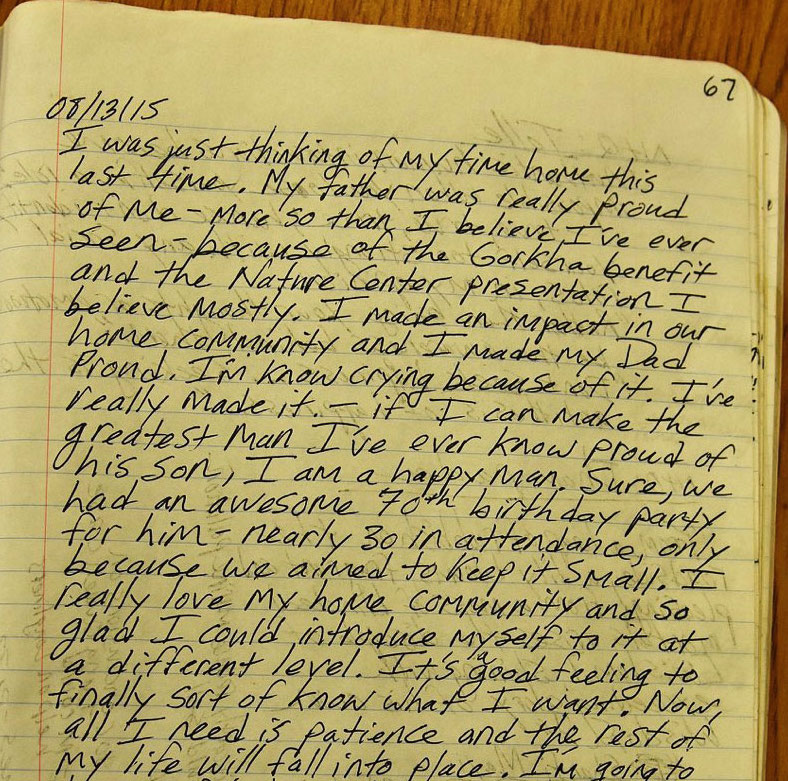 67
08/13/15
I was just thinking of my time home this
last time. My father was really proud
of me - more so than I believe I've ever
seen - because of the Gorkha benefit
and the Nature Center presentation I
believe mostly. I made an impact in our
home community and I made my Dad
proud. I'm know crying because of it. I've
really made it. - if I can make the
greatest man I've ever know proud of
his son, I am a happy man. Sure, we
had an awesome 70th birthday party
for him - nearly 30 in attendance, only
because we aimed to keep it small. I
really love my home community and so
glad I could introduce myself to it at
a different level. It's a good feeling to
finally sort of know what I want. Now,
all I need is patience and the rest of
my life will fall into place. I'm going to